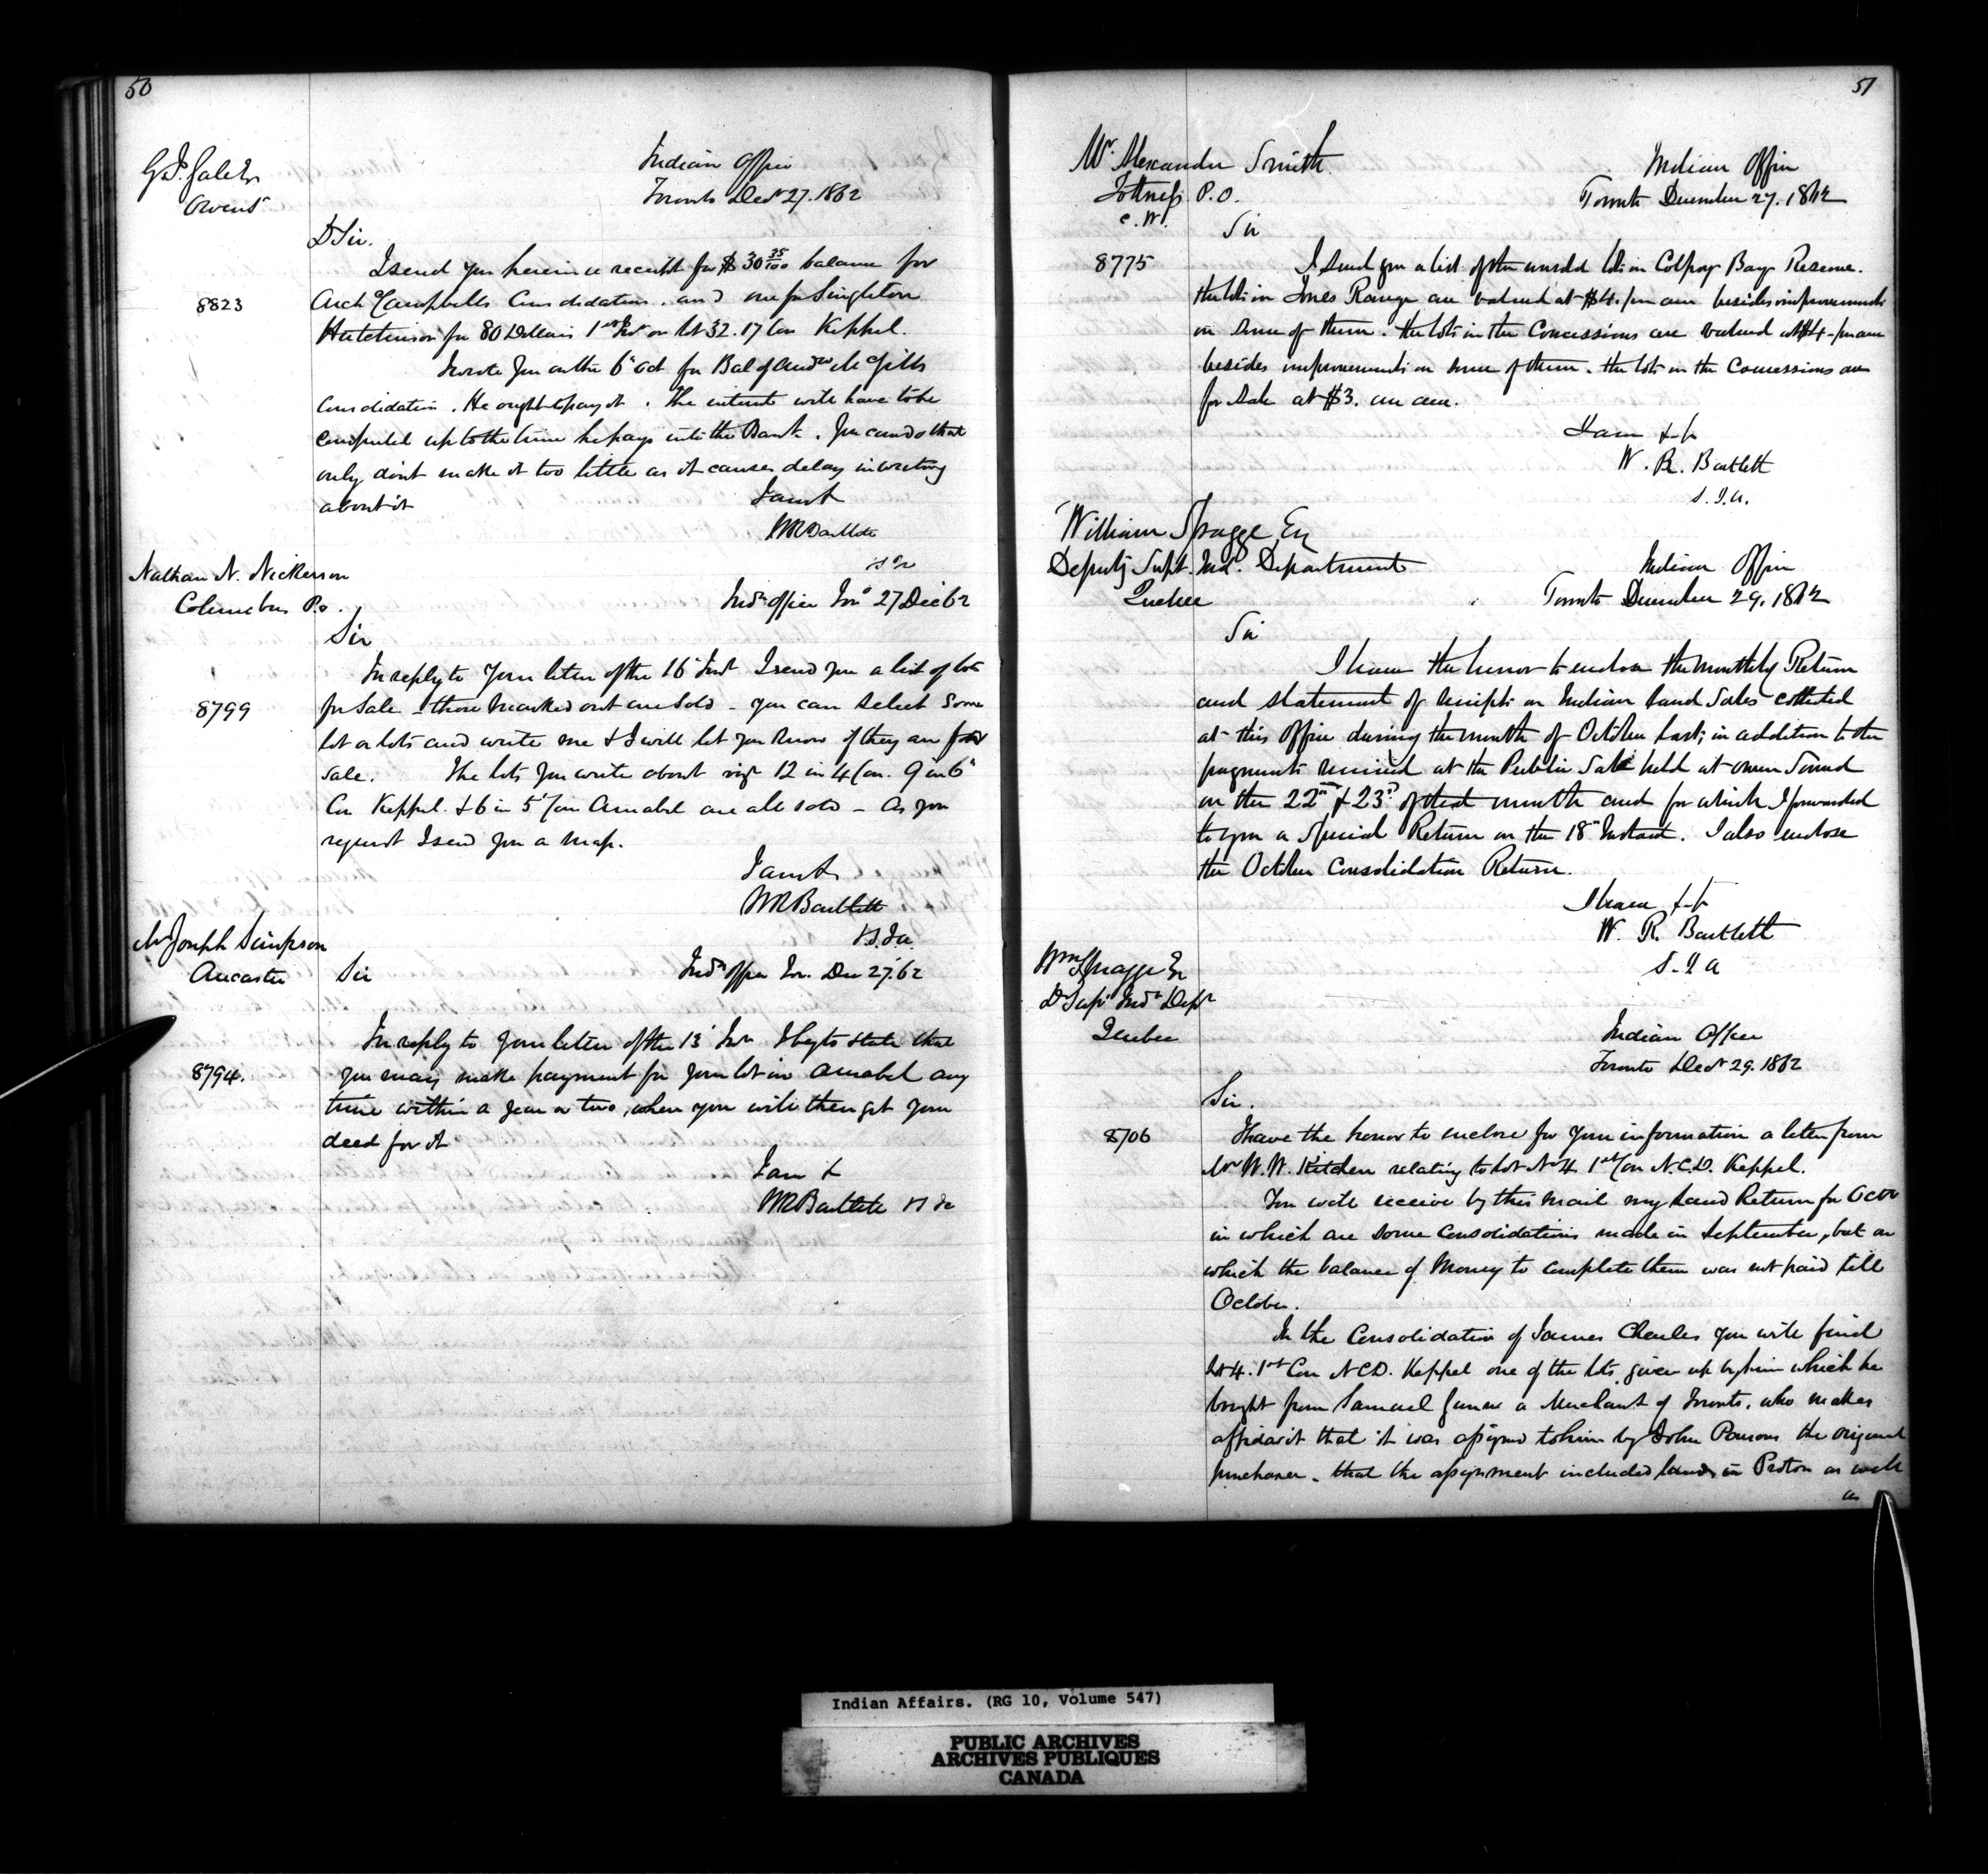 50
G. J. Gale Esr
Owens
Indian Office
Toronto Decr 27. 1862
D Sir.
8823
I send you herein a receipt for $30 35/100 balance for
Arch Campbells Consolidation. and one for Singleton
Hutchinson for 80 Dollars 1st Inst on lot 32. 17 Con Keppel.
I wrote you on the 6" Oct for Bal of Andw McGills
Consolidation. He ought to pay it. The interest will have to be
computed up to the time he pays into the Bank. You can do that
only dont make it too little as it causes delay in writing
about it
I am &
WR Bartlett
Nathan N. Nickerson
Columbus P.O.
Indn Office Tor. 27 Dec 62
Sir
8799
In reply to your letter of the 16" Inst I send you a list of lots
for Sale - those marked out are Sold - you can select some
lot or lots and write me & I will let you know if they are for
sale. The lots you write about viz 12 in 4 Con. 9 in 6"
Con Keppel. & 6 in 5" Con Amabel are all sold - As you
request I send you a map.
I am &
WR Bartlett
S.I.A.
Mr Joseph Simpson
Ancaster
Indn Office Tor. Dec 27. 62
Sir
8794.
In reply to your letter of the 13" Inst I beg to state that
you may make payment for your lot in Amabel any
time within a year or two, when you will then get your
deed for it
I am &
WR Bartlett
51
Mr. Alexander Smith
Tottness P.O.
C.W.
Indian Office
Toronto December 27. 1862
Sir
8775
I send you a list of the unsold lots in Colpoy Bay Reserve.
the lots in Jones Range are valued at $4. per acre besides improvements
on some of them. the lots in the Concessions are valued at $4 - per acre
besides improvements on some of them. the lots in the Concessions are
for Sale at $3. an acre.
I am &c
W. R. Bartlett
S.I.A.
William Spragge Esq
Deputy Supt. Ind. Department
Quebec
Indian Office
Toronto December 29. 1862
Sir
I have the honor to enclose the monthly Return
and statement of receipts on Indian Land Sales collected
at this Office during the month of October last; in addition to the
payments received at the Public Sale held at Owen Sound
on the 22nd & 23rd of that month and for which I forwarded
to you a Special Return on the 18" Instant. I also enclose
the October Consolidation Return.
I have &c
W. R. Bartlett
S.I.A
Wm Spragge Esr
D Supt Indn Dept
Quebec
Indian Office
Toronto Decr 29. 1862
Sir.
8706
I have the honor to enclose for your information a letter from
Mr W. W. Kitchen relating to Lot No 4 1st Con N.C.D. Keppel.
You will receive by this mail my Land Return for Octr
in which are some Consolidations made in September, but on
which the balance of Money to complete them was not paid till
October.
In the Consolidation of James Charles you will find
Lot 4. 1st Con N C D. Keppel one of the lots given up by him which he
bought from Samuel a Merchant of Toronto, who makes
affidavit that it was assigned to him by John Parsons the original
purchaser. that the assignment included lands in Proton as well
as
Indian Affairs. (RG 10, Volume 547)
PUBLIC ARCHIVES
ARCHIVES PUBLIQUES
CANADA